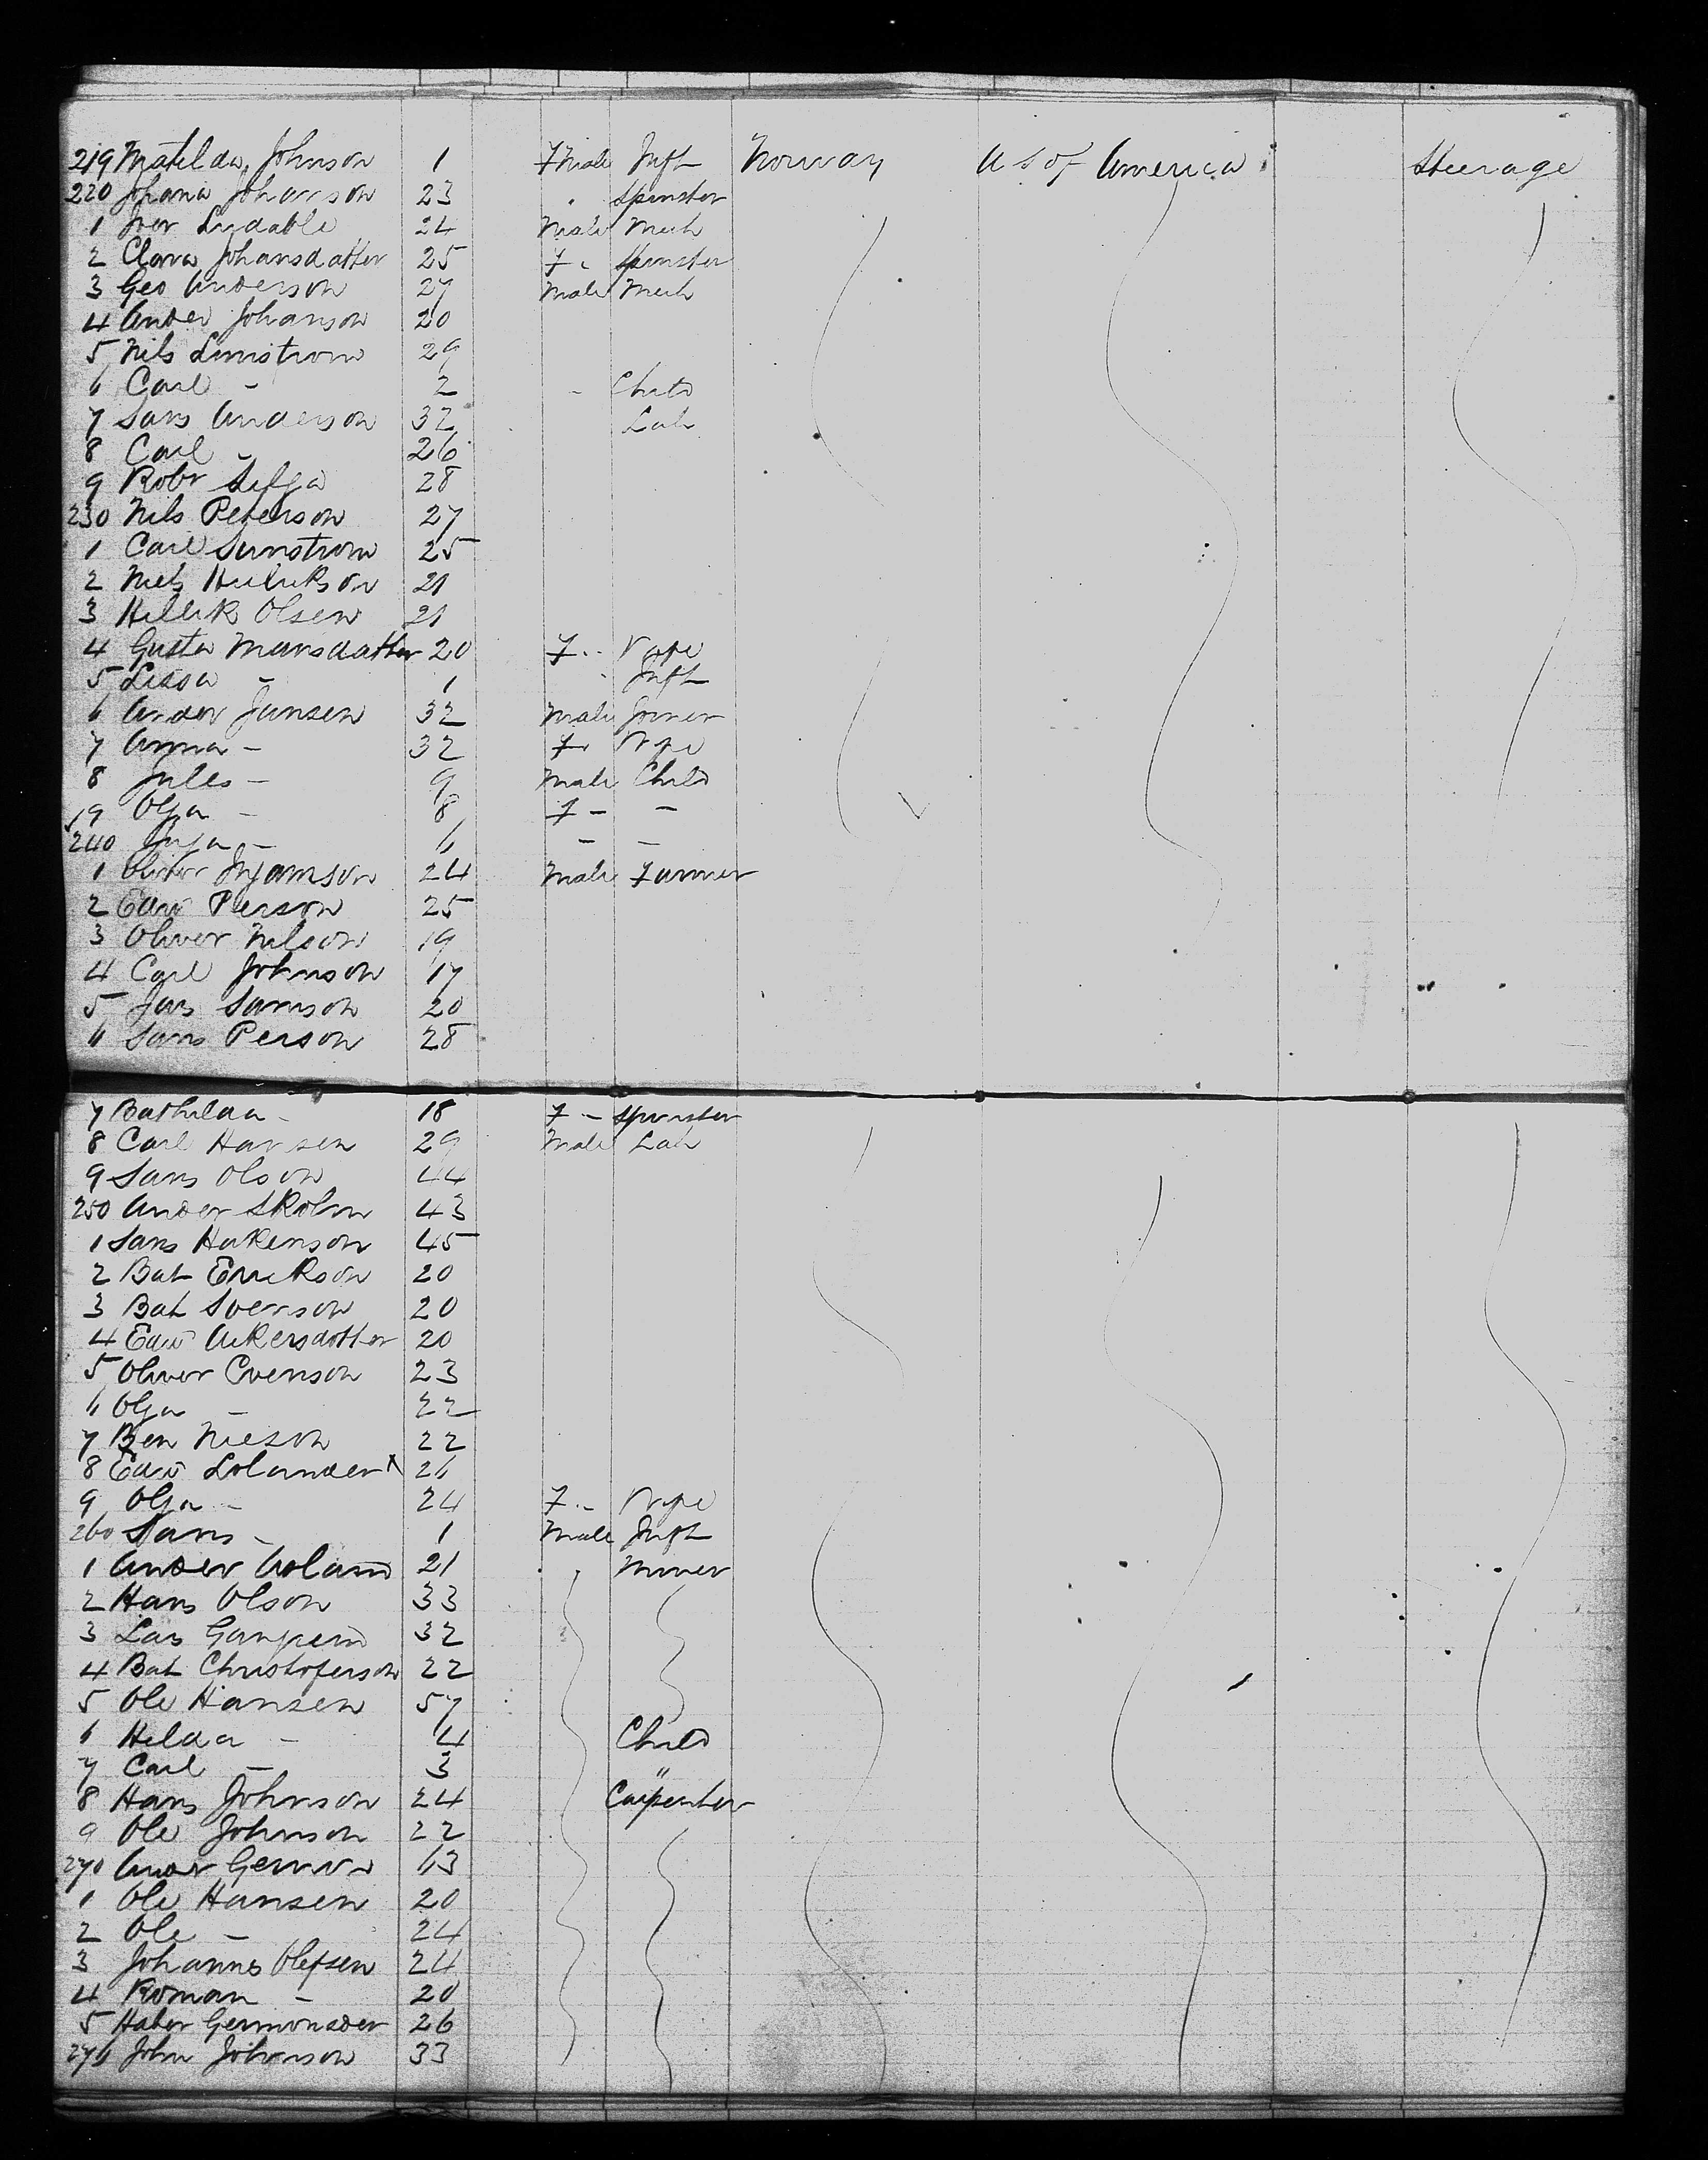 219 Matilda Johnson 1 Fmale Inft Norway U S of America Steerage
220 Johana Johanson 23 " Spinster
1 Iver Lydable 24 Male Mech
2 Clara Johansdatter 25 F " Spinster
3 Geo Anderson 27 Male Mech
4 Ander Johanson 20
5 Nils Linistrom 29
6 Carl - 2 - Child
7 Lars Anderson 32 Lab
8 Carl - 26
9 Robr 28
230 Nils Peterson 27
1 Carl Sunstrom 25
2 Niels 21
3 Olsen 21
4 Gusta Mansdatter 20 F " Wife
5 Lissa - 1 " Inft
6 Ander Jansen 32 Male Joiner
7 Anna - 32 F " Wife
8 Jules - 9 Male Child
19 Olga - 8 F - -
240 Inga - 6 - -
1 Oliver 24 Male Farmer
2 Edw Person 25
3 Oliver Nilson 19
4 Carl Johnson 17
5 Jas Samson 20
6 Lars Person 28
7 Bathilda - 18 F - Spinster
8 Carl Hansen 29 Male Lab
9 Lars Olson 44
250 Ander Skolm 43
1 Lars Hakenson 45
2 Bat Errikson 20
3 Bat Svenson 20
4 Edw Akersdotter 20
5 Oliver Evenson 23
6 Olga - 22
7 Ben Nieson 22
8 Edw Lolander x 26
9 Olga - 24 F - Wife
260 Lars - 1 Male Inft
1 Ander Aoland 21 " Miner
2 Hans Olson 33
3 Lars 32
4 Bat Christoferson 22
5 Ole Hansen 57
6 Hilda - 4 Child
7 Carl - 3 "
8 Hans Johnson 24 Carpenter
9 Ole Johnson 22
270 Ander 63
1 Ole Hansen 20
2 Ole - 24
3 Johannes Olefsen 24
4 Roman - 20
5 Haber 26
276 John Johanson 33